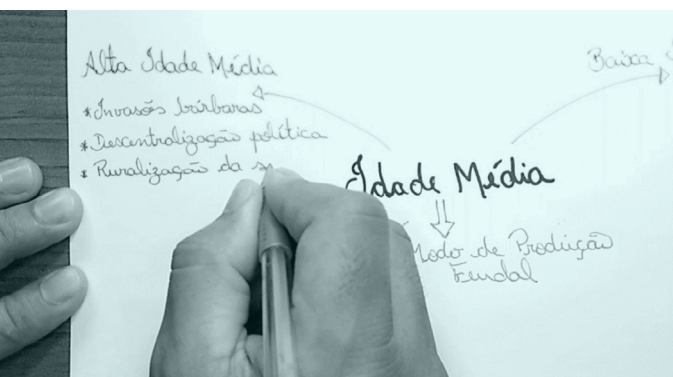 Alta Idade Média
Baixa
*Invasões bárbaras
*Descentralização política
*Ruralização da
Idade Média
Modo de Produção
Feudal